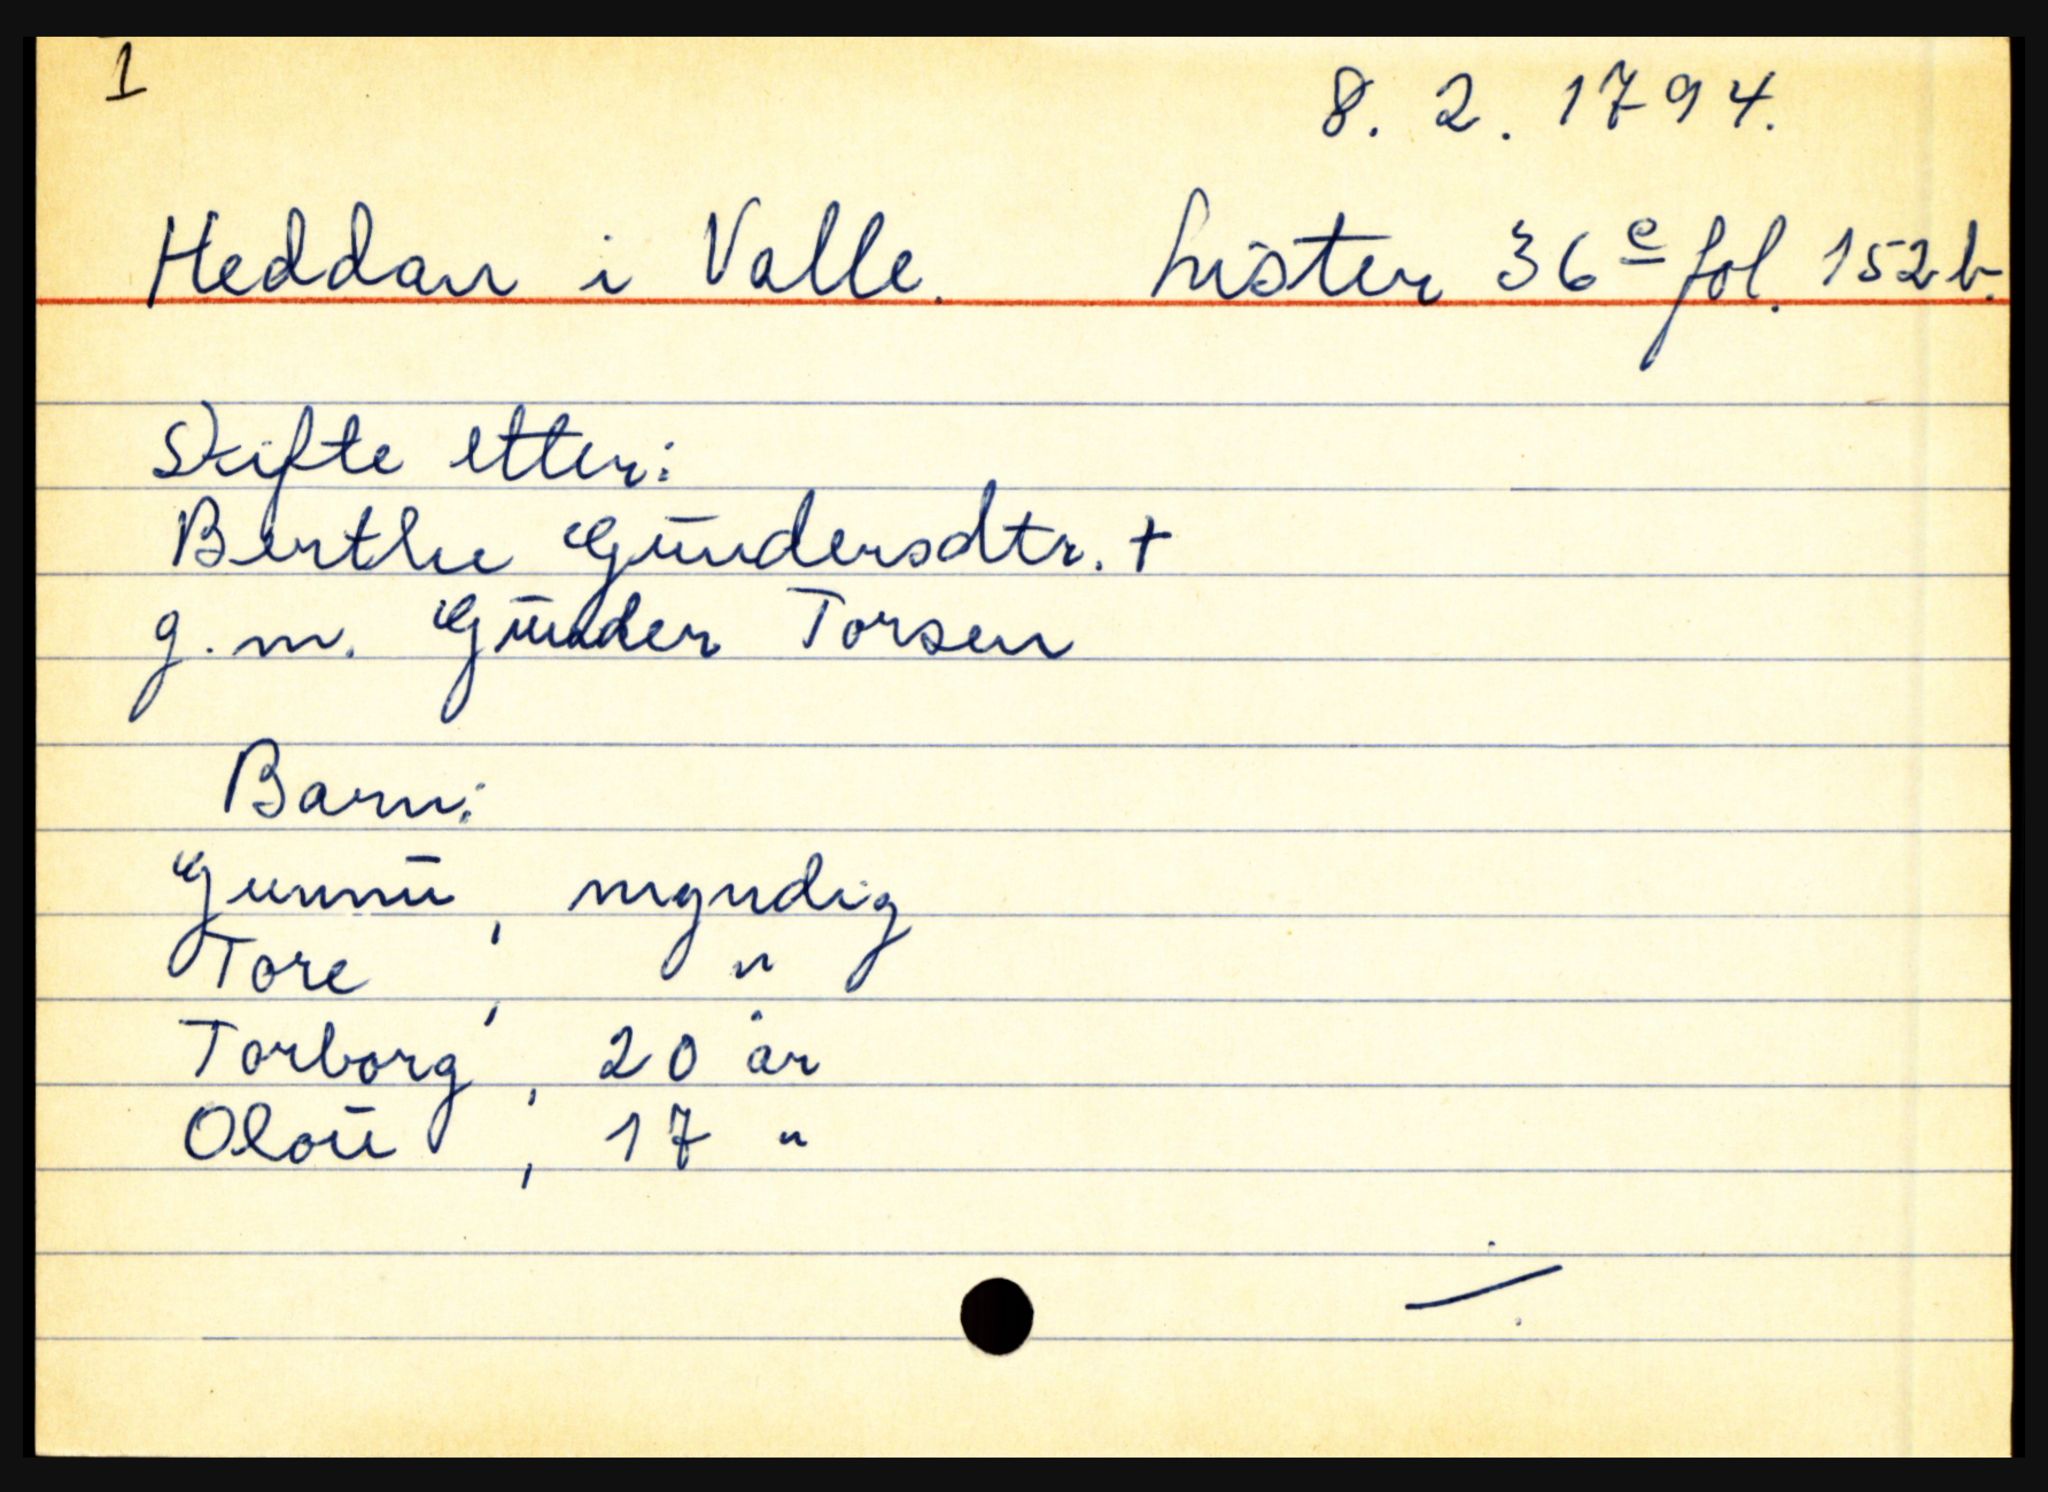 1
8. 2. 1794.
Heddan i Valle. Lister 36 e fol. 152b.
Skifte etter:
Berthe Gundersdtr. +
g. m. Gunder Torsen
Barn:
Gunnu, myndig
Tore, "
Torborg, 20 år
Olou, 17 "